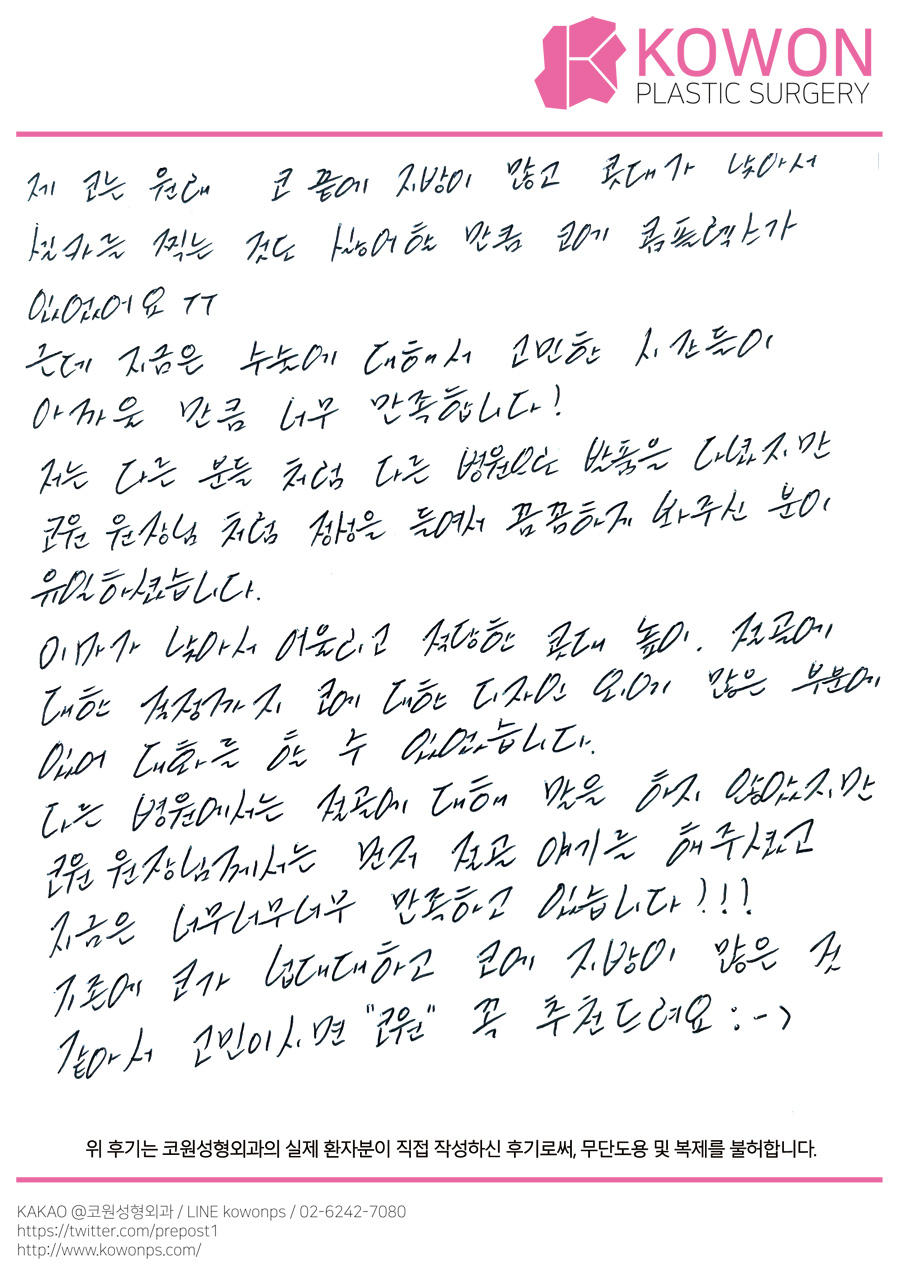 KOWON
PLASTIC SURGERY
제 코는 원래 코 끝에 지방이 많고 콧대가 낮아서
사진찍는 것도 싫어할 만큼 코에 콤플렉스가
있었어요 ㅠㅠ
근데 지금은 수술에 대해서 고민한 시간들이
아까울 만큼 너무 만족합니다!
저는 다른 분들 처럼 다른 병원으로 발품을 다녔지만
코원 원장님 처럼 정성을 들여서 꼼꼼하게 봐주신 분이
유일하셨습니다.
이마가 낮아서 어울리고 적당한 콧대 높이. 절골에
대한 걱정까지 코에 대한 디자인 외에 많은 부분에
있어 대화를 할 수 있었습니다.
다른 병원에서는 절골에 대해 말을 하지 않았지만
코원 원장님께서는 먼저 절골 얘기를 해주셨고
지금은 너무너무너무 만족하고 있습니다!!!
코가 넙대대하고 코에 지방이 많은 것
같아서 고민이시면 "코원" 꼭 추천드려요 :->
위 후기는 코원성형외과의 실제 환자분이 직접 작성하신 후기로써, 무단도용 및 복제를 불허합니다.
KAKAO @코원성형외과 / LINE kowonps / 02-6242-7080
https://twitter.com/prepost1
http://www.kowonps.com/